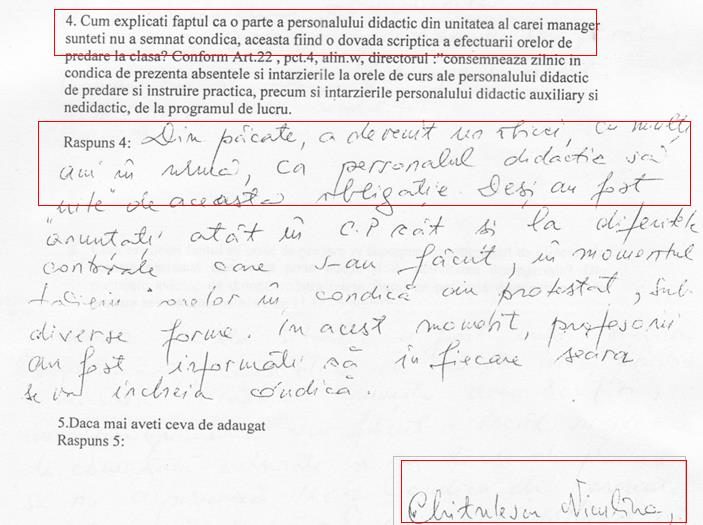 4. Cum explicati faptul ca o parte a personalului didactic din unitatea al carei manager
sunteti nu a semnat condica, aceasta fiind o dovada scriptica a efectuarii orelor de
predare la clasa? Conform Art.22 , pct.4, alin.w, directorul :"consemneaza zilnic in
condica de prezenta absentele si intarzierile la orele de curs ale personalului didactic
de predare si instruire practica, precum si intarzierile personalului didactic auxiliary si
nedidactic, de la programul de lucru.
Raspuns 4: Din păcate, a devenit un obicei, cu mulți
ani în urmă, ca personalul didactic să
"uite" de această obligație. Deși au fost
anunțați atât în C.P cât și la diferitele
controale care s-au făcut, în momentul
tăierii orelor în condică au protestat, sub
diverse forme. În acest moment, profesorii
au fost informați că în fiecare seara
se va încheia condică.
5.Daca mai aveti ceva de adaugat
Raspuns 5:
Chitulescu Niculina,